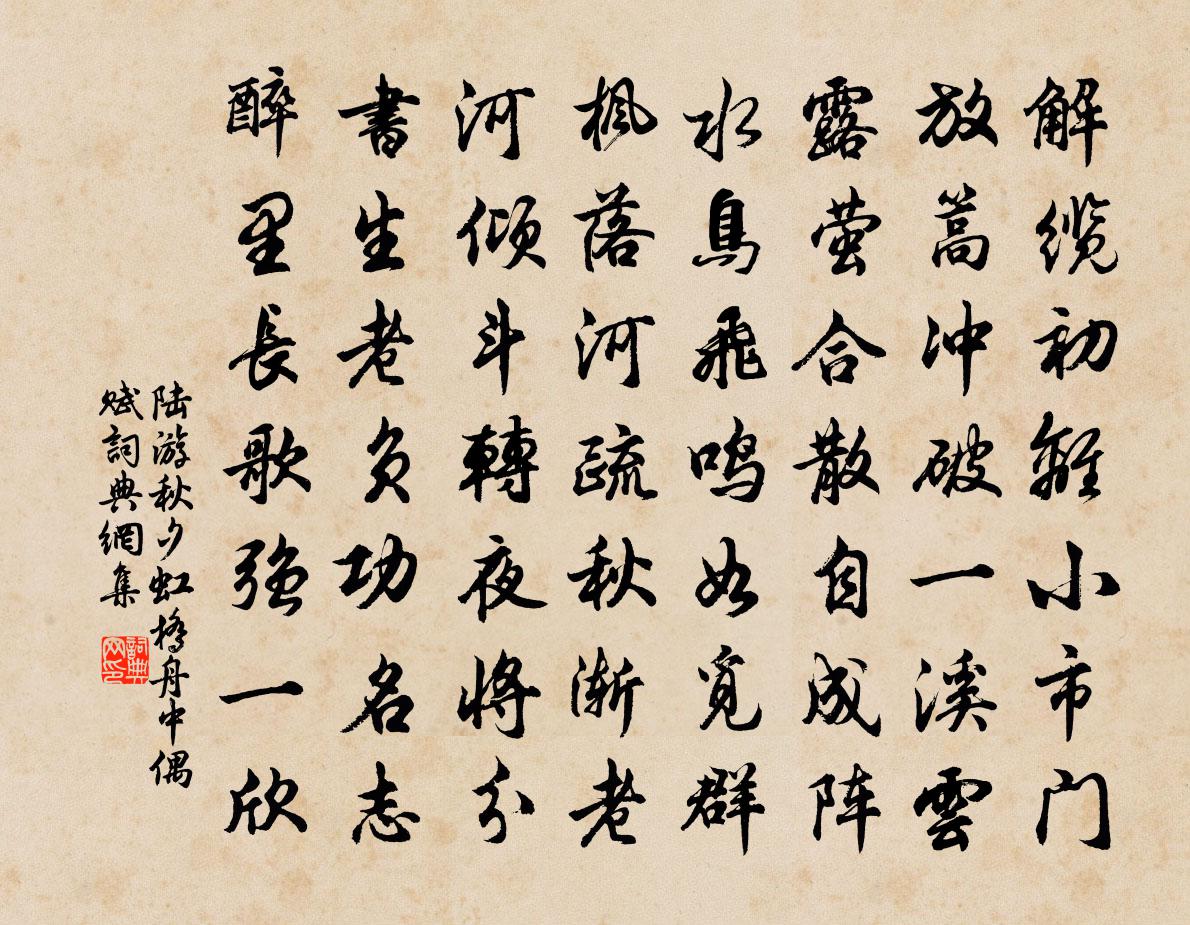 解缆初離小市门
放篙冲破一溪雲
露萤合散自成阵
水鳥飛鸣如觅群
楓落河疏秋渐老
河倾斗轉夜将分
書生老负功名志
醉里長歌强一欣
陆游秋夕虹橋舟中偶
赋詞典網集
詞典
网印